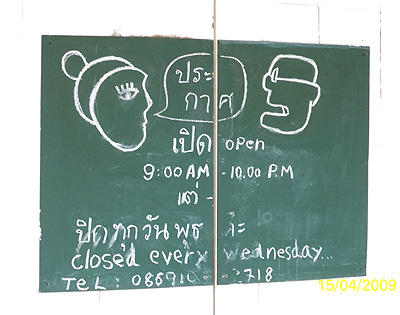 ประ
กาศ
เปิด open
9:00 AM - 10.00 P.M
แต่ -
ปิดทุกวันพุธ
closed every wednesday...
TeL : 718
15/04/2009